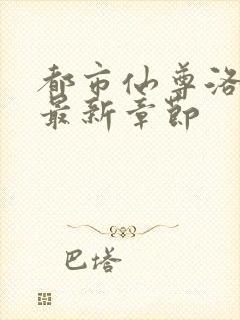 都市仙尊洛
最新章节
巴塔